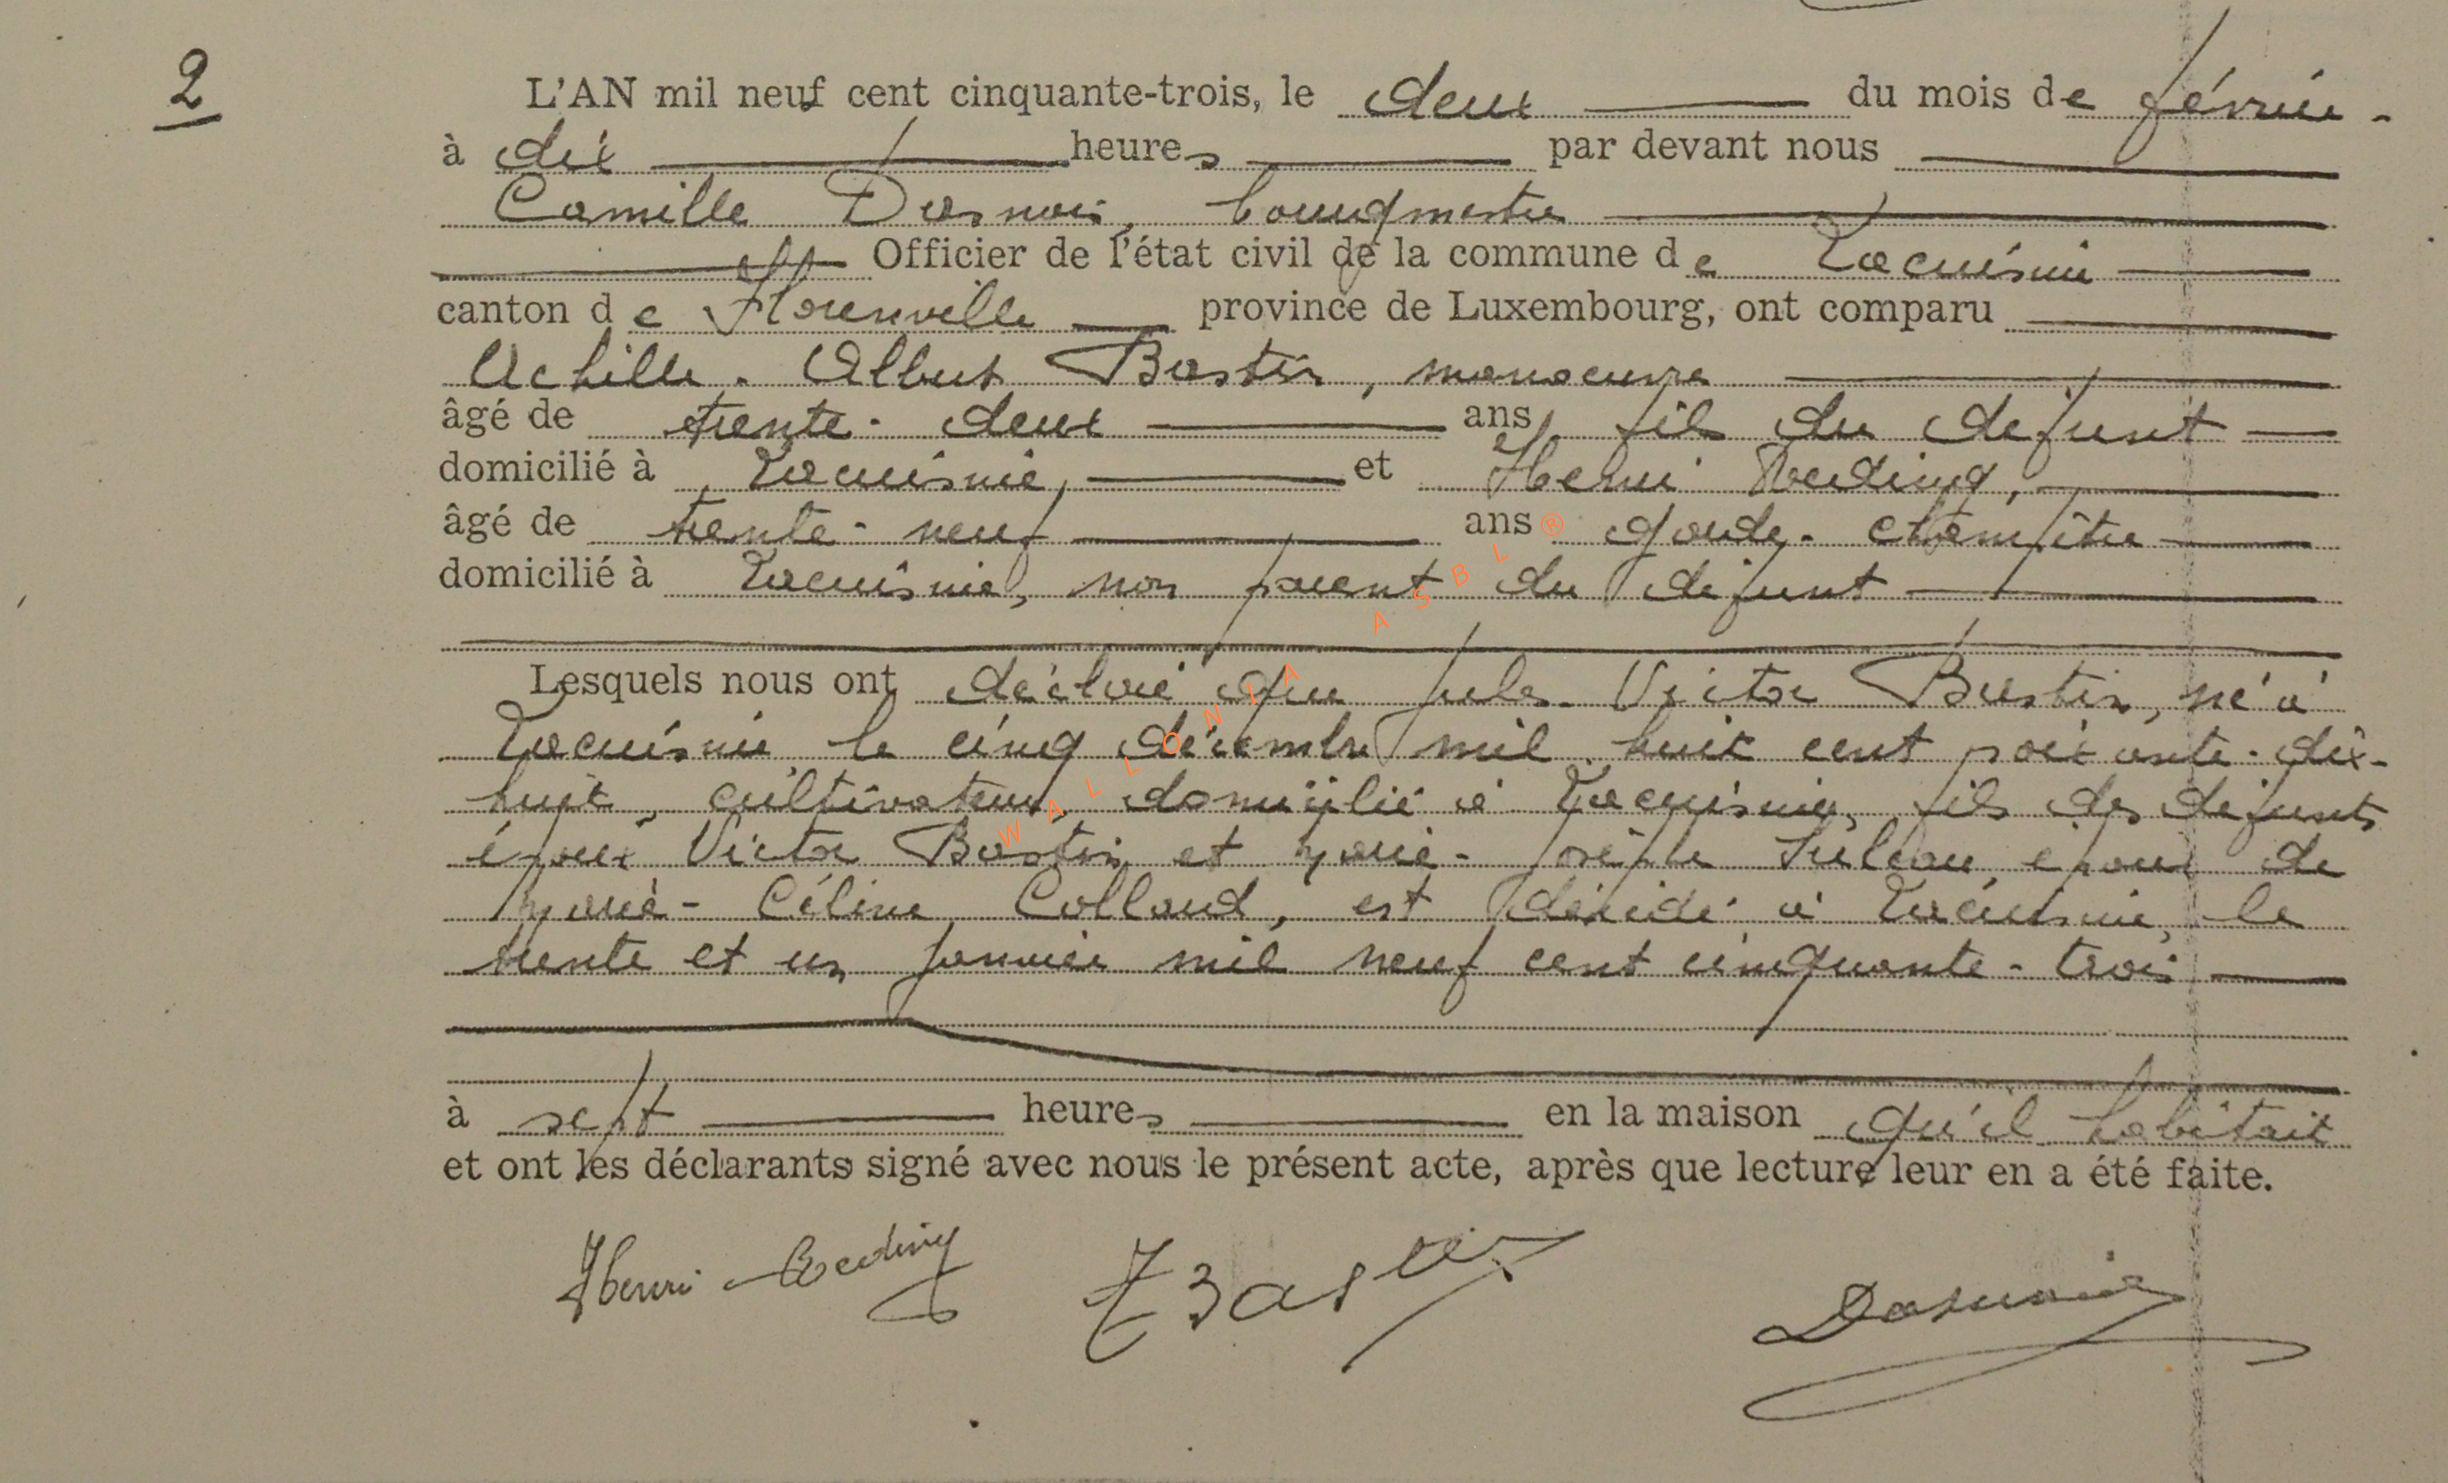 2
L'AN mil neuf cent cinquante-trois, le deux du mois de février
à dix heures par devant nous
Camille Dasnois, bourgmestre
Officier de l'état civil de la commune de Lacuisine
canton de Florenville province de Luxembourg, ont comparu
Achille-Albert Bastin, manoeuvre
âgé de trente-deux ans, fils du défunt
domicilié à Lacuisine, et Henri
âgé de trente-neuf ans garde-champêtre
domicilié à Lacuisine, non parent du défunt
Lesquels nous ont déclaré que Jules-Victor Bastin, né à
Lacuisine le cinq décembre mil huit cent soixante-dix-
huit, cultivateur, domicilié à Lacuisine, fils des défunts
époux Victor Bastin et Marie-Josèphe époux de
Marie-Céline Collard, est décédé à Lacuisine, le
trente et un janvier mil neuf cent cinquante-trois
à sept heures en la maison qu'il habitait
et ont les déclarants signé avec nous le présent acte, après que lecture leur en a été faite.
Henri Bastin Dasnois
WALLONIA ASBL ®